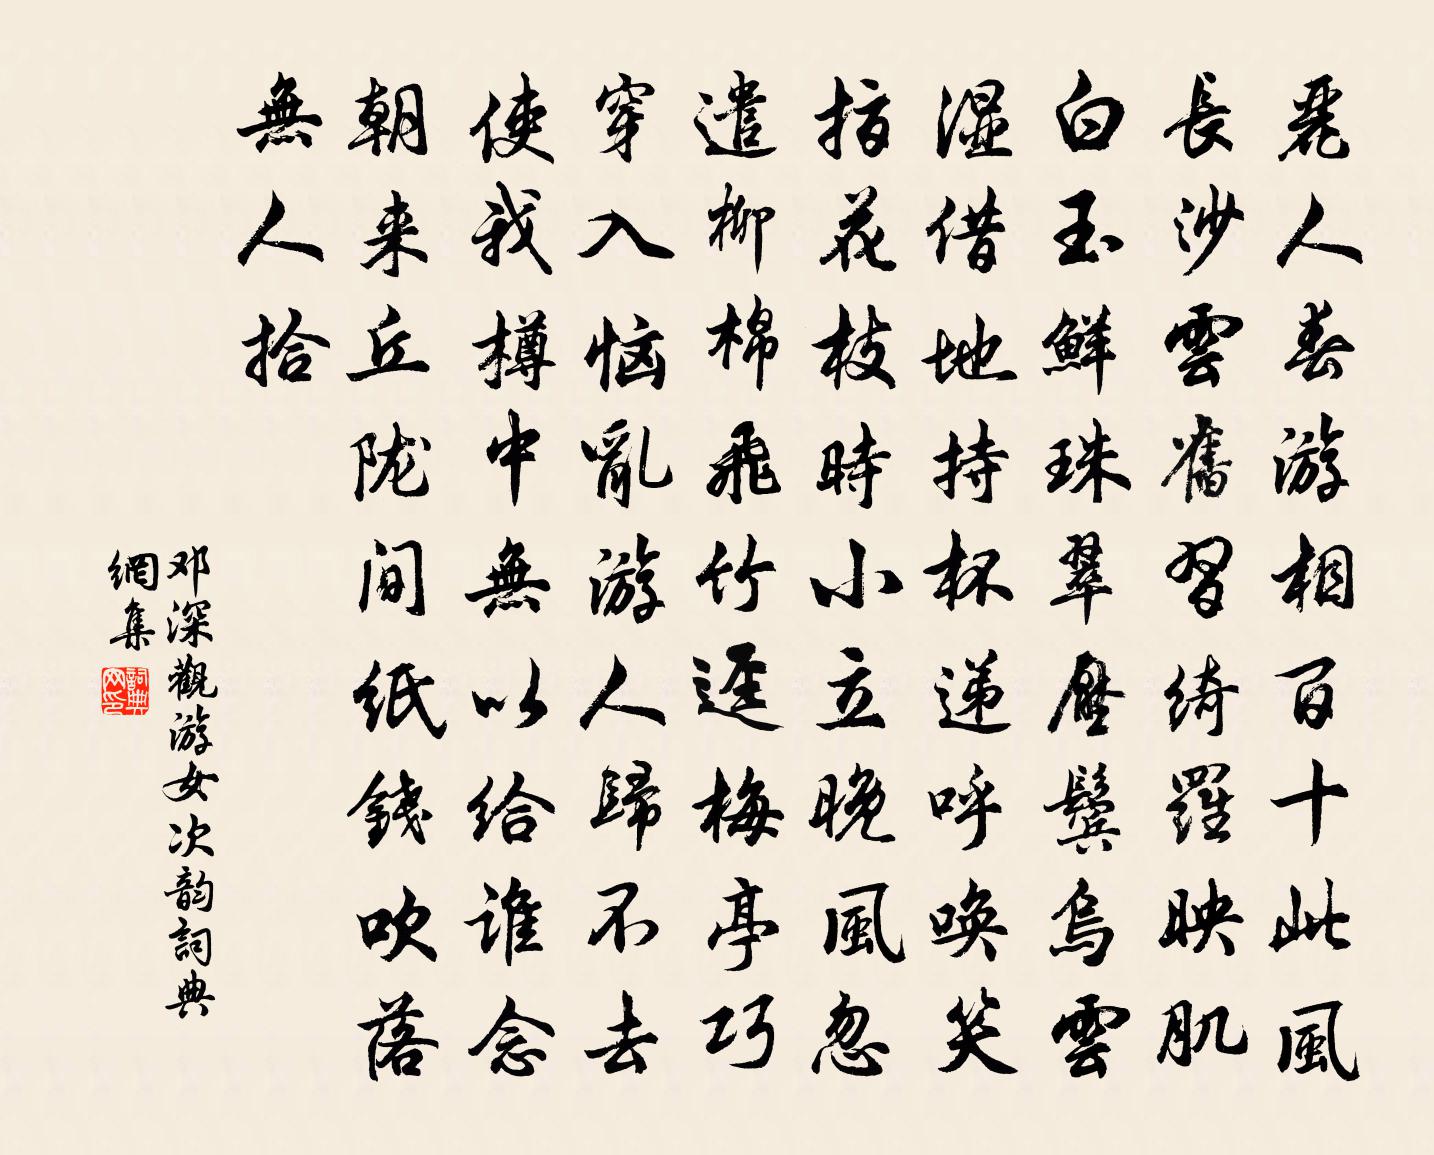 麗人春游相百十此風
長沙雲舊習綺羅映肌
白玉鮮珠翠壓鬓烏雲
濕借地持杯递呼唤笑
指花枝時小立晚風忽
遣柳棉飛竹逕梅亭巧
穿入恼亂游人歸不去
使我樽中無以给谁念
朝来丘陇间纸錢吹落
無人拾
邓深觀游女次韵詞典
網集
詞典網印